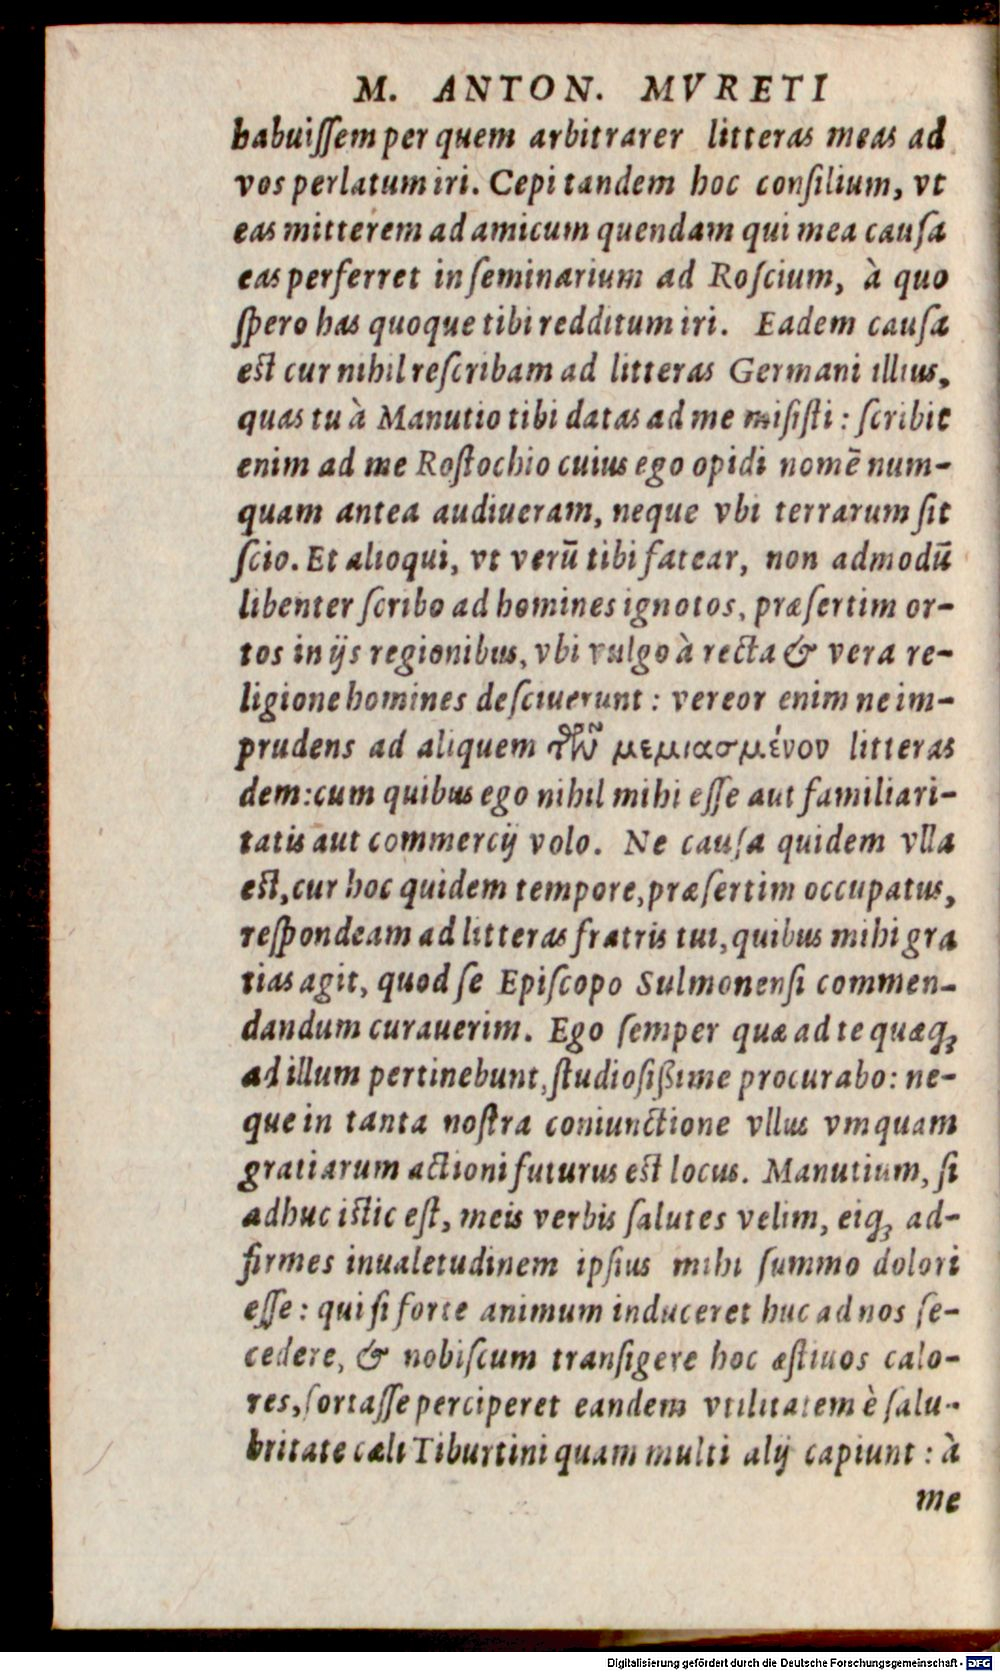 M. ANTON. MVRETI
habuiſſem per quem arbitrarer litteras meas ad
vos perlatum iri. Cepi tandem hoc conſilium, vt
eas mitterem ad amicum quendam qui mea cauſa
eas perferret in ſeminarium ad Roſcium, à quo
ſpero has quoque tibi redditum iri. Eadem cauſa
eſt cur nihil reſcribam ad litteras Germani illius,
quas tu à Manutio tibi datas ad me miſiſti: ſcribit
enim ad me Roſtochio cuius ego opidi nomē num-
quam antea audiueram, neque vbi terrarum ſit
ſcio. Et alioqui, vt verū tibi fatear, non admodū
libenter ſcribo ad homines ignotos, præſertim or-
tos in ijs regionibus, vbi vulgo à recta & vera re-
ligione homines deſciuerunt: vereor enim ne im-
prudens ad aliquem τῶν μεμιασμένον litteras
dem: cum quibus ego nihil mihi eſſe aut familiari-
tatis aut commercij volo. Ne cauſa quidem vlla
eſt, cur hoc quidem tempore, præſertim occupatus,
reſpondeam ad litteras fratris tui, quibus mihi gra
tias agit, quod ſe Epiſcopo Sulmonenſi commen-
dandum curauerim. Ego ſemper quæ ad te quæq;
ad illum pertinebunt, ſtudioſißime procurabo: ne-
que in tanta noſtra coniunctione vllus vmquam
gratiarum actioni futurus eſt locus. Manutium, ſi
adhuc iſtic eſt, meis verbis ſalutes velim, eiq; ad-
firmes inualetudinem ipſius mihi ſummo dolori
eſſe: qui ſi forte animum induceret huc ad nos ſe-
cedere, & nobiſcum tranſigere hoc æſtiuos calo-
res, fortaſſe perciperet eandem vtilitatem è ſalu-
britate cæli Tiburtini quam multi alij capiunt: à
me
Digitalisierung gefördert durch die Deutsche Forschungsgemeinschaft - DFG